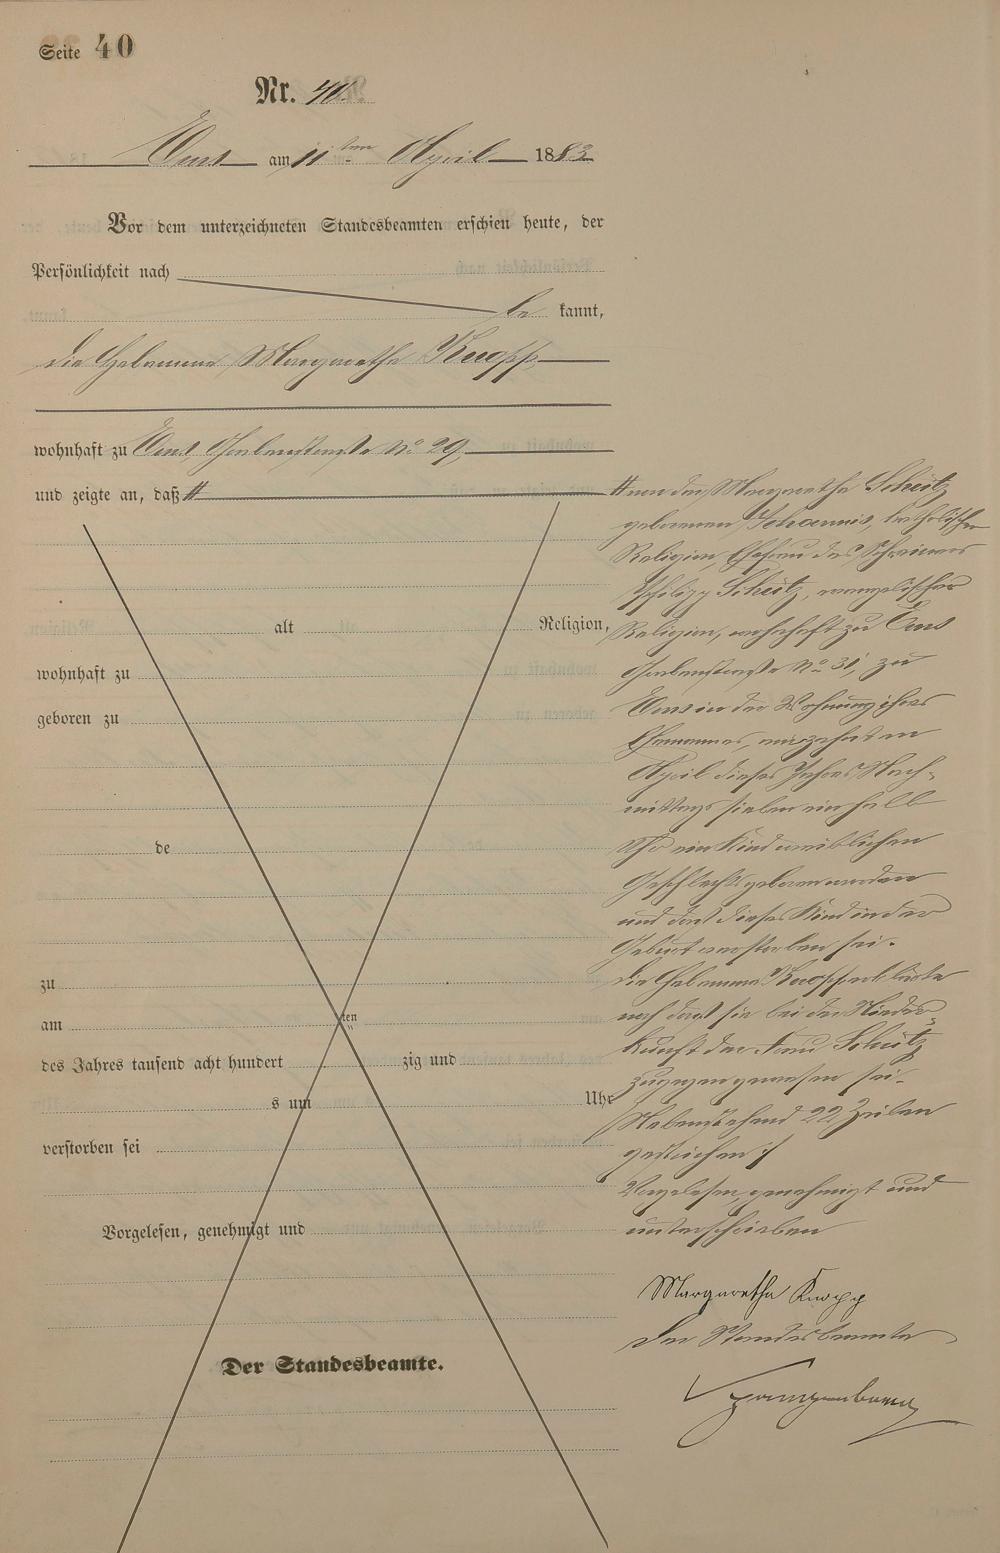 Seite 40
Nr. 40.
Ems am 11ten April 1883
Vor dem unterzeichneten Standesbeamten erschien heute, der
Persönlichkeit nach
be kannt,
die Hebamme Margaretha Knopp
wohnhaft zu Ems, Grabenstraße No 29,
und zeigte an, daß #
alt Religion,
wohnhaft zu
geboren zu
de
zu
am ten
des Jahres tausend acht hundert zig und
s um Uhr
verstorben sei
Vorgelesen, genehmigt und
Der Standesbeamte.
# von der Margaretha Scheitz
geborenen Johannis, katholischer
Religion, Ehefrau des Schreiners
Philipp Scheitz, evangelischer
Religion, wohnhaft zu Ems
Grabenstraße No 31, zu
Ems in der Wohnung ihres
Ehemannes, am zehnten
April dieses Jahres Nach-
mittags sieben ein halb
Uhr ein Kind weiblichen
Geschlechts geboren worden
und daß dieses Kind in der
Geburt verstorben sei.
Die Hebamme Knopp erklärte
noch daß sie bei der Nieder-
kunft der Frau Scheitz
zugegen gewesen sei.
Nebenstehend 22 Zeilen
gestrichen
Vorgelesen, genehmigt und
unterschrieben
Margaretha Knopp
Der Standesbeamte